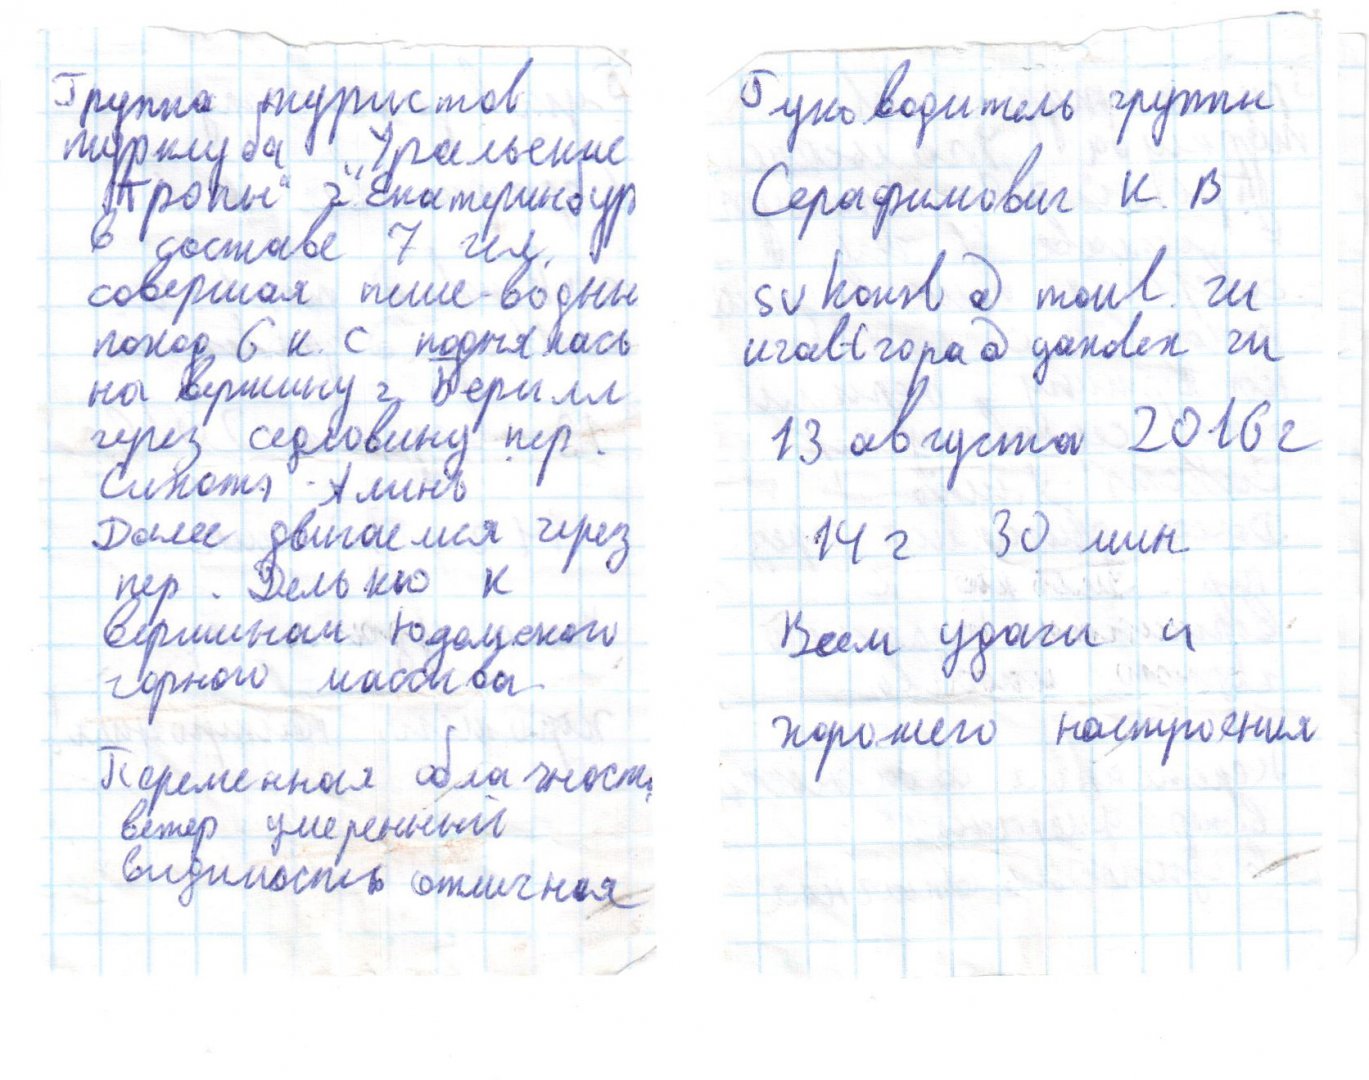 Группа туристов
турклуба "Уральские
Тропы" г. Екатеринбур
в составе 7 чел.
совершая пеше-водны
поход 6 к. с поднялась
на вершину г. Берилл
через седловину пер.
Синота - Алинь
Далее двигаемся через
пер. Делькю к
вершинам Юдомского
горного массива
Переменная облачност
ветер умеренный
видимость отличная
Руководитель группы
Серафимович К. В
13 августа 2016 г
14 г 30 мин
Всем удачи и
хорошего настроения